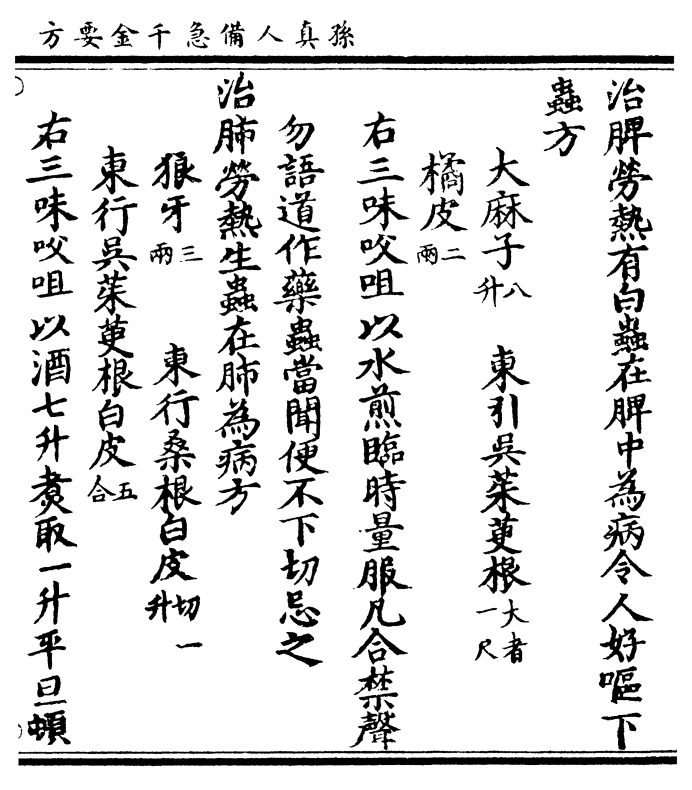 孫真人備急千金要方
治脾勞熱有白蟲在脾中為病令人好嘔下
蟲方
大麻子八升 東引吳茱萸根大者一尺
橘皮二兩
右三味㕮咀以水煎臨時量服凡合禁聲
勿語道作藥蟲當聞便不下切忌之
治肺勞熱生蟲在肺為病方
狼牙三兩 東行桑根白皮切一升
東行吳茱萸根白皮五合
右三味㕮咀以酒七升煑取一升平旦頓